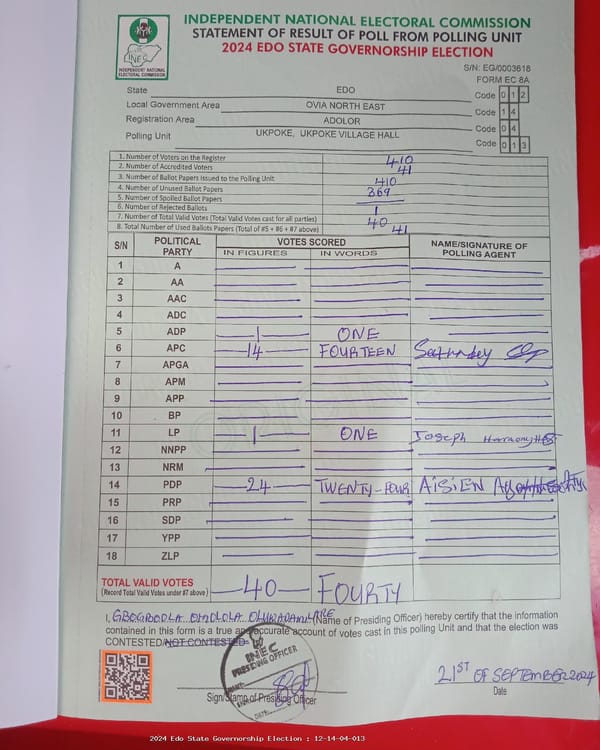 INDEPENDENT NATIONAL ELECTORAL COMMISSION
STATEMENT OF RESULT OF POLL FROM POLLING UNIT
2024 EDO STATE GOVERNORSHIP ELECTION
INEC
INDEPENDENT NATIONAL
ELECTORAL COMMISSION
S/N: EG/0003618
FORM EC 8A
State EDO Code 0 1 2
Local Government Area OVIA NORTH EAST Code 1 4
Registration Area ADOLOR Code 0 4
Polling Unit UKPOKE, UKPOKE VILLAGE HALL Code 0 1 3
1. Number of Voters on the Register 410
2. Number of Accredited Voters 41
3. Number of Ballot Papers Issued to the Polling Unit 410
4. Number of Unused Ballot Papers 369
5. Number of Spoiled Ballot Papers
6. Number of Rejected Ballots 1
7. Number of Total Valid Votes (Total Valid Votes cast for all parties) 40
8. Total Number of Used Ballots Papers (Total of #5 + #6 + #7 above) 41
S/N POLITICAL PARTY VOTES SCORED NAME/SIGNATURE OF POLLING AGENT
IN FIGURES IN WORDS
1 A
2 AA
3 AAC
4 ADC
5 ADP 1 ONE
6 APC 14 FOURTEEN
7 APGA
8 APM
9 APP
10 BP
11 LP 1 ONE Joseph
12 NNPP
13 NRM
14 PDP 24 TWENTY-FOUR AISIEN
15 PRP
16 SDP
17 YPP
18 ZLP
TOTAL VALID VOTES 40 FOURTY
(Record Total Valid Votes under #7 above)
I, OMOLOLA (Name of Presiding Officer) hereby certify that the information
contained in this form is a true and accurate account of votes cast in this polling Unit and that the election was
CONTESTED/NOT CONTESTED
INEC
PRESIDING OFFICER
DATE:
Sign/Stamp of Presiding Officer
21ST OF SEPTEMBER 2024
Date
2024 Edo State Governorship Election : 12-14-04-013